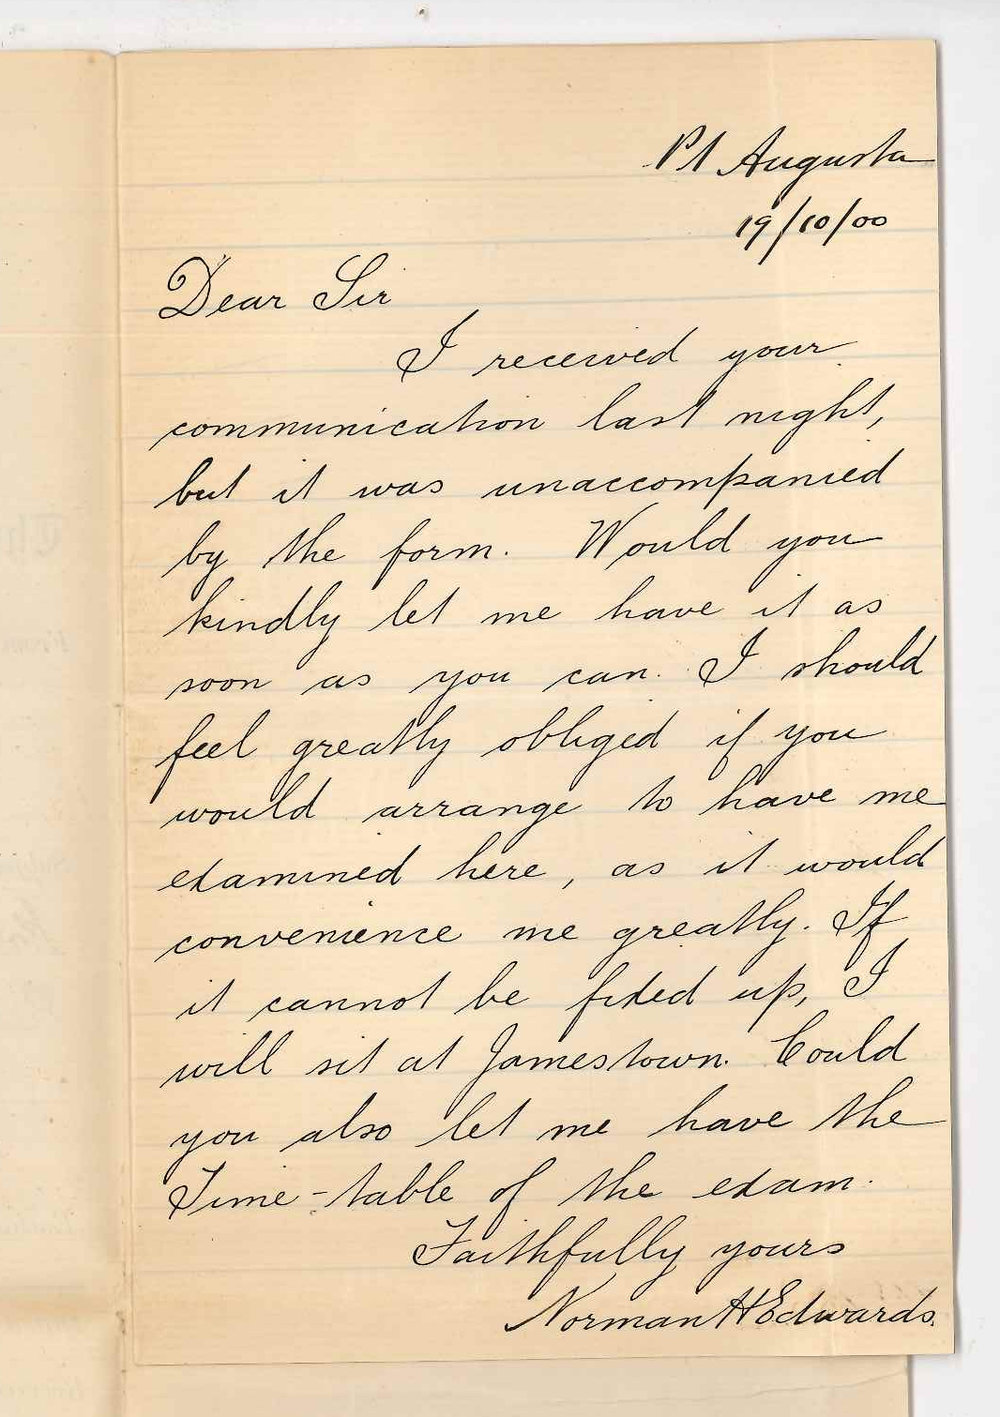 Pt Augusta
19/10/00
Dear Sir
I received your
communication last night,
but it was unaccompanied
by the form. Would you
kindly let me have it as
soon as you can. I should
feel greatly obliged if you
would arrange to have me
examined here, as it would
convenience me greatly. If
it cannot be fixed up, I
will sit at Jamestown. Could
you also let me have the
Time-table of the exam.
Faithfully yours
Norman H Edwards.